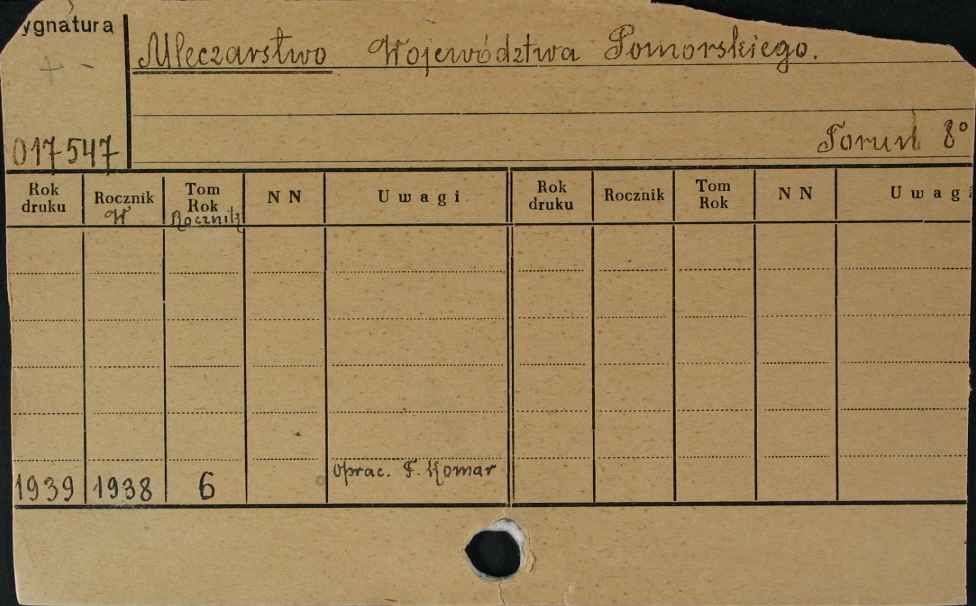 ygnatura
+ -
Mleczarstwo Województwa Pomorskiego.
017547
Toruń 8°
Rok druku Rocznik W Tom Rok Rocznik N N Uwagi Rok druku Rocznik Tom Rok N N Uwagi
1939 1938 6 oprac. F. Komar